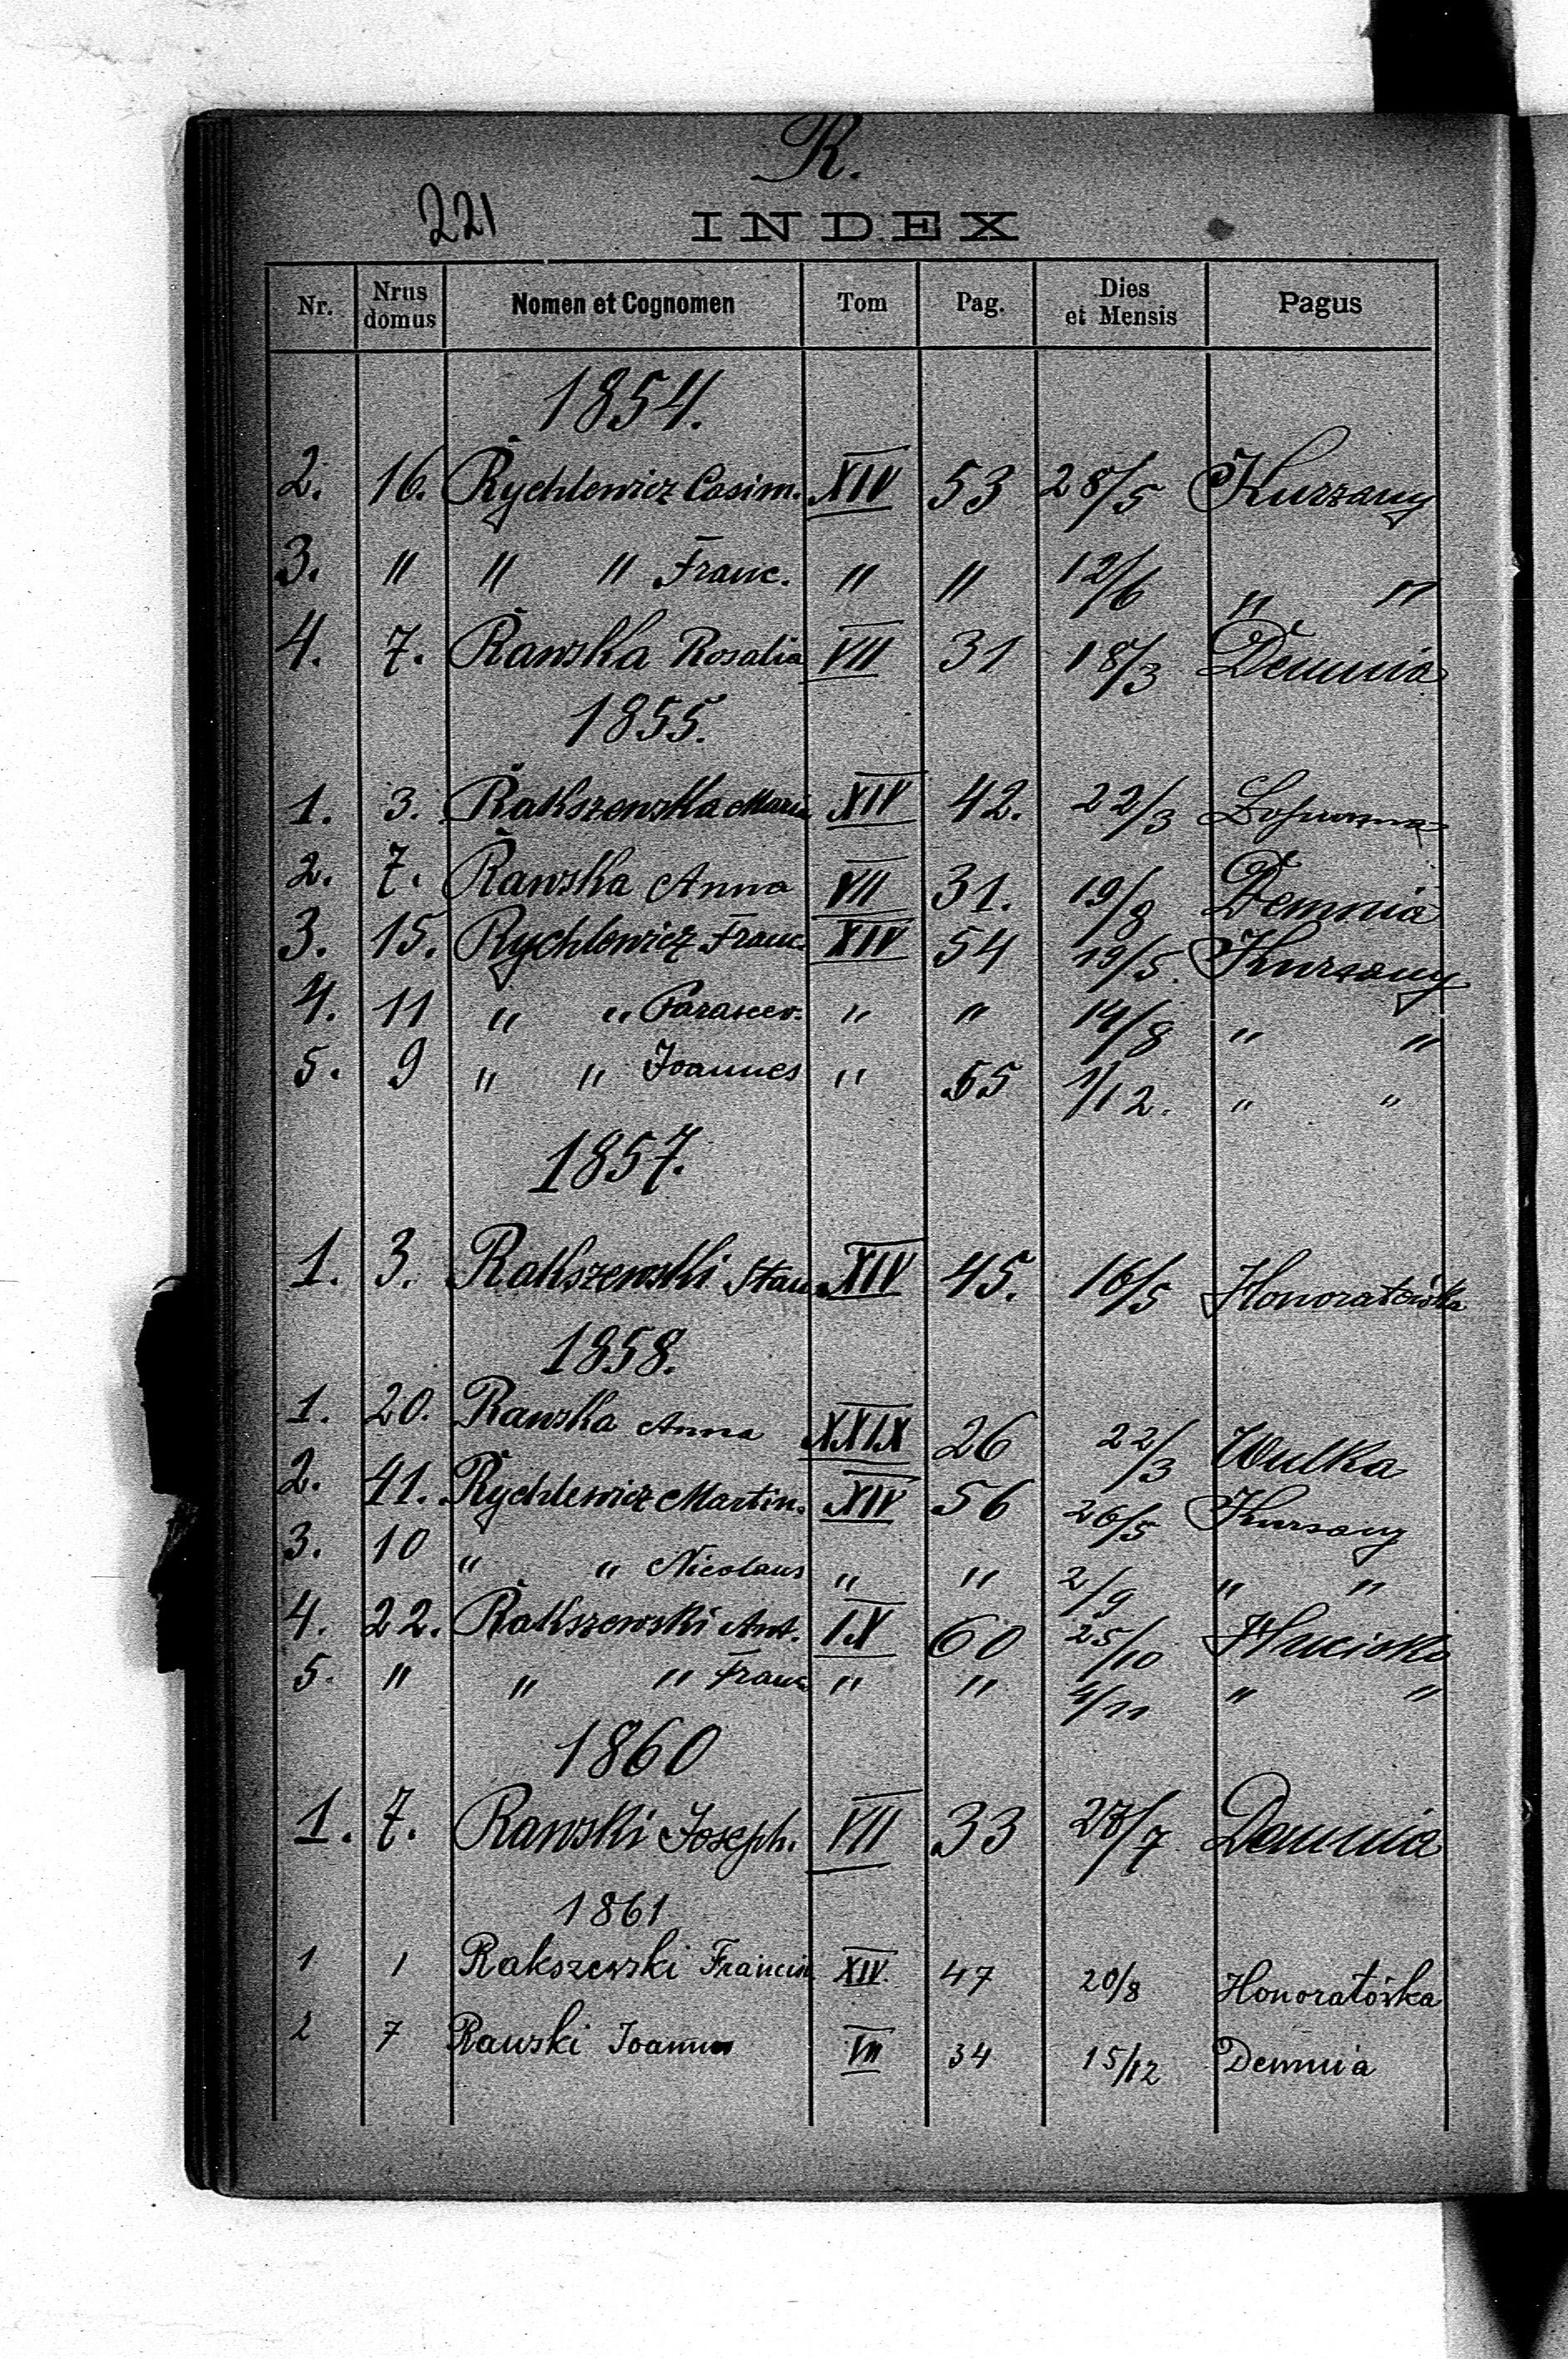 R.
221
INDEX
Nr. Nrus domus Nomen et Cognomen Tom Pag. Dies et Mensis Pagus
1854.
2. 16. Rychlewicz Casim. XIV 53 28/5 Kurzany
3. " " " Franc. " " 12/6 " "
4. 7. Rawska Rosalia VII 31 18/3 Demnia
1855.
1. 3. Rakszewska Maria XIV 42. 22/3
2. 7. Rawska Anna VII 31. 19/8 Demnia
3. 15. Rychlewicz Franc. XIV 54 19/5. Kurzany
4. 11 " " Parascev. " " 14/8 " "
5. 9 " " Joannes " 55 1/12. " "
1857.
1. 3. Rakszewski Stan. XIV 45. 16/5 Honoratówka
1858.
1. 20. Rawska Anna XXIX 26 22/3 Wulka
2. 41. Rychlewicz Martin. XIV 56 26/5 Kurzany
3. 10 " " Nicolaus " " 2/9 " "
4. 22. Rakszewski Ant. IX 60 25/10 Hucisko
5. " " " Franc. " " 4/11 " "
1860
1. 7. Rawski Joseph. VII 33 /7 Demnia
1861
1 1 Rakszewski Francis. XIV. 47 20/8 Honoratówka
2 7 Rawski Joannes VII 34 15/12 Demnia